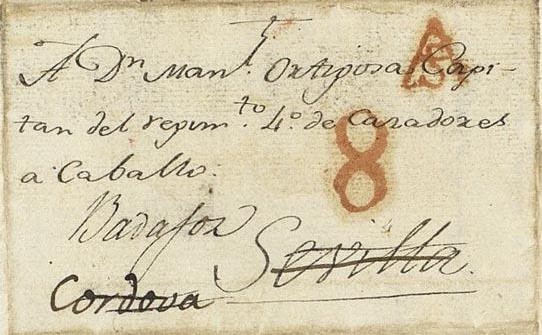 A Dn Manl. Ortiposa Capi-
tan del regimto. 4º. de Cazadores
a Caballo.
8
Badajoz
Sevilla.
Cordova